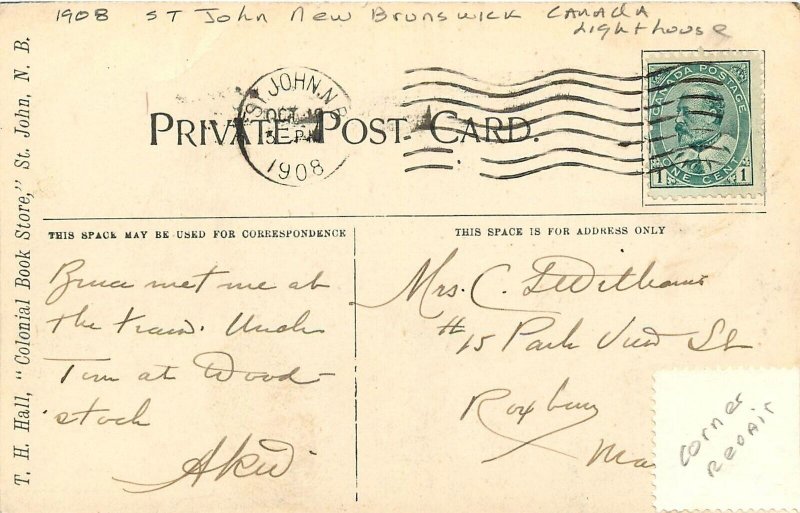 1908 ST John New Brunswick CANADA
Lighthouse
T. H. Hall, "Colonial Book Store," St. John, N. B.
ST. JOHN, N.B.
OCT
PM
1908
CANADA POSTAGE
1 ONE CENT 1
PRIVATE POST CARD.
THIS SPACE MAY BE USED FOR CORRESPONDENCE
THIS SPACE IS FOR ADDRESS ONLY
Bruce met me at
the train. Uncle
Tim at Wood-
stock
Mrs. C. Williams
#15 Park View St
Roxbury
Ma
corner
repair